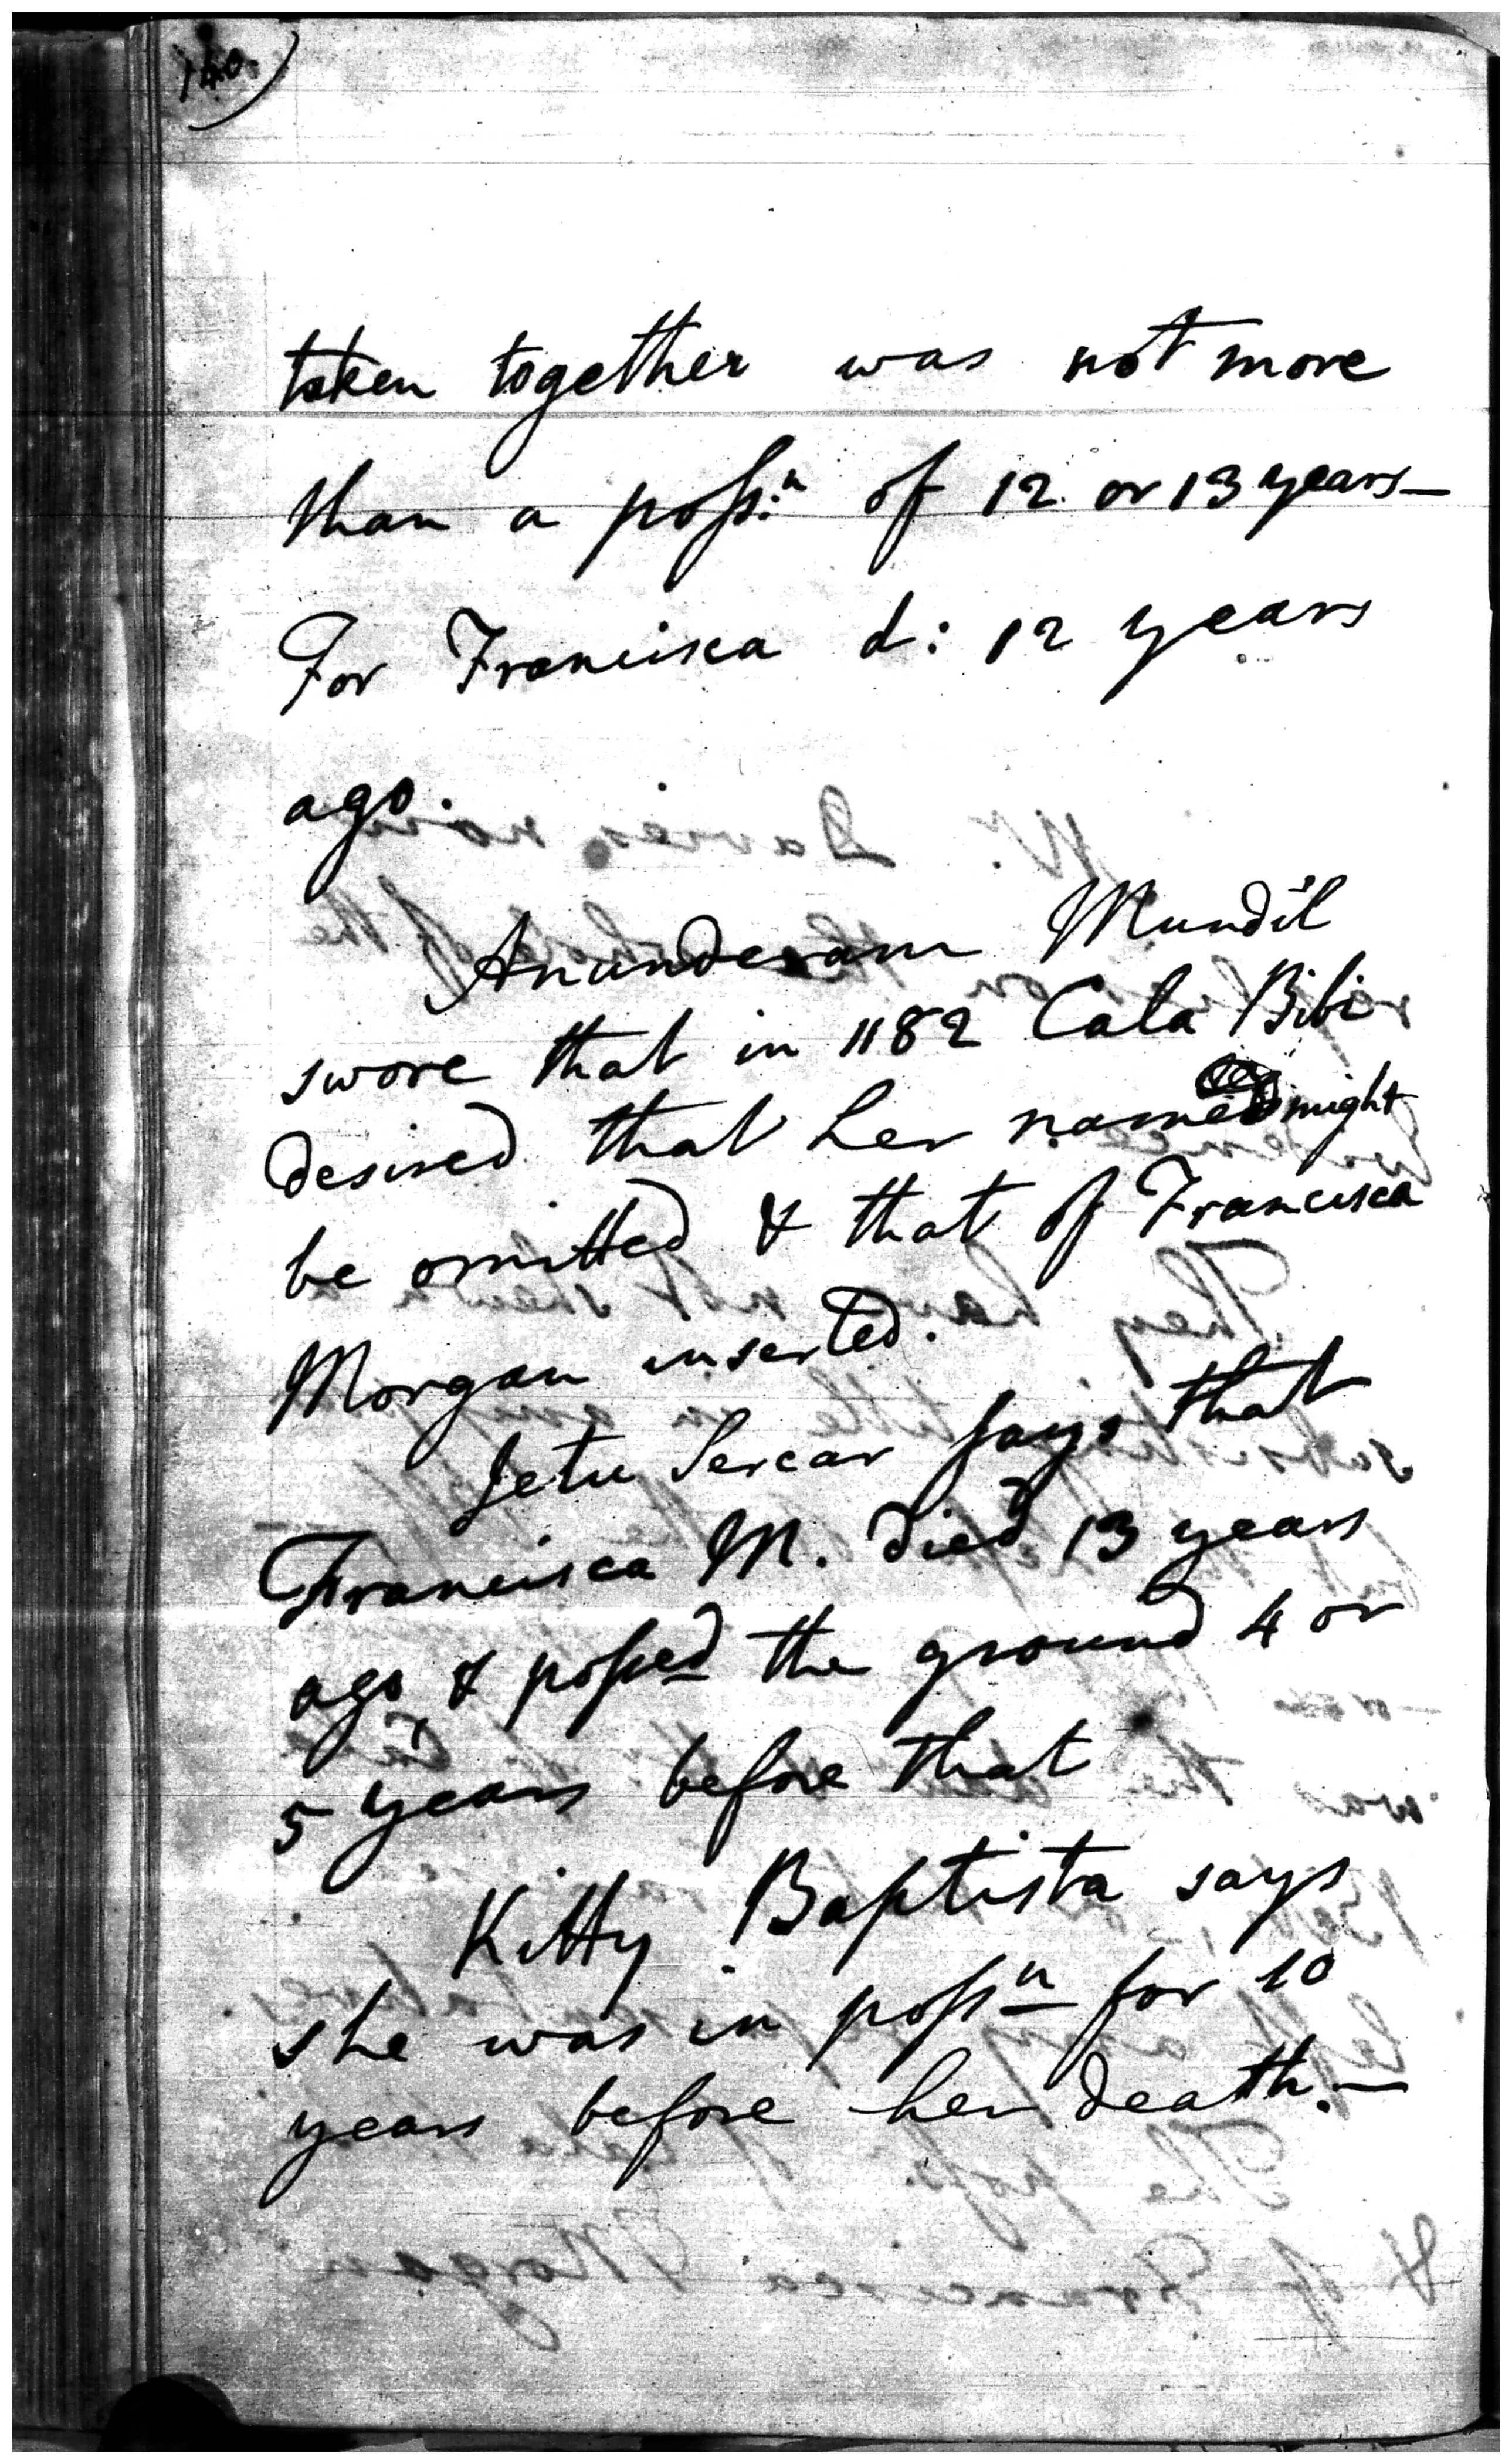 140)
taken together was not more
than a poſs:ⁿ of 12 or 13 years—
For Francisca d: 12 years
ago.
Anunderam Mundil
swore that in 1182 Cala Bibi
desired that her name might
be omitted & that of Francisca
Morgan inserted.
Jetu Sercar says that
Francisca M. died 13 years
ago & poſsed the ground 4 or
5 years before that
Kitty Baptista says
she was in poſsⁿ for 10
years before her death.—